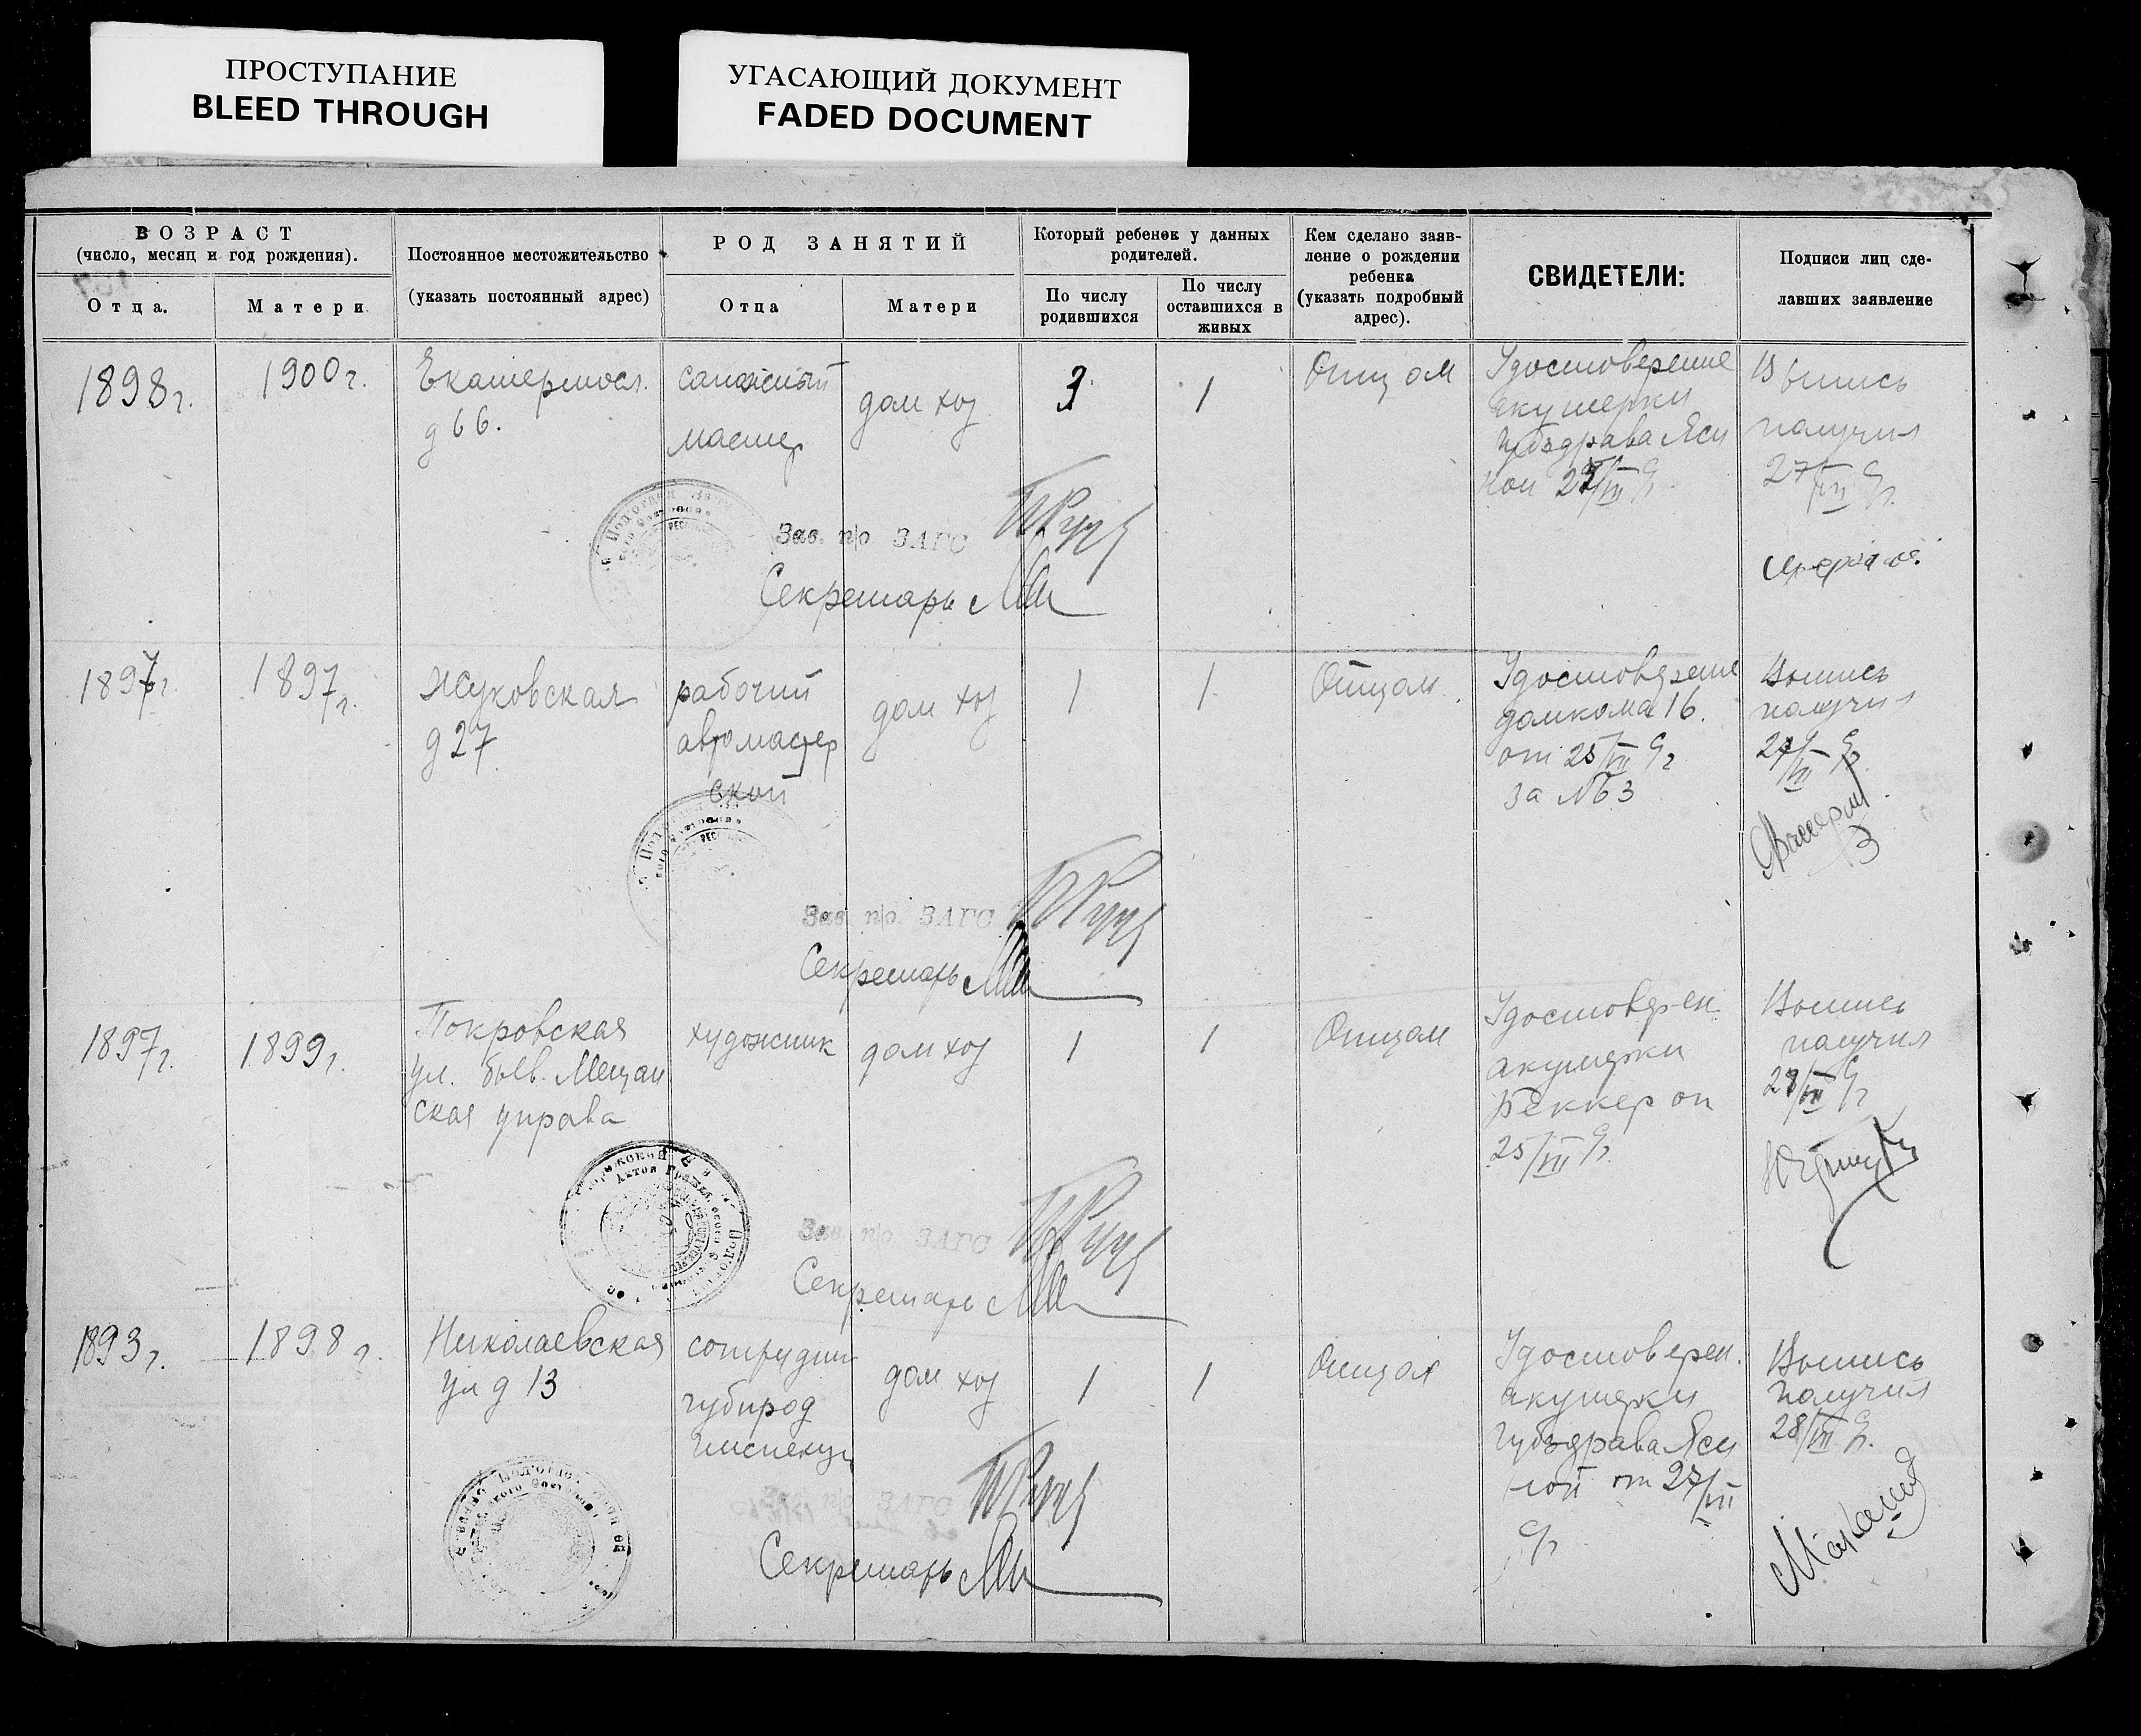 ПРОСТУПАНИЕ
BLEED THROUGH
УГАСАЮЩИЙ ДОКУМЕНТ
FADED DOCUMENT
ВОЗРАСТ
(число, месяц и год рождения).
Отца.
Матери
Постоянное местожительство
(указать постоянный адрес)
РОД ЗАНЯТИЙ
Отца
Матери
Который ребенок у данных
родителей.
По числу
родившихся
По числу
оставшихся в
живых
Кем сделано заяв-
ление о рождении
ребенка
(указать подробный
адрес).
СВИДЕТЕЛИ:
Подписи лиц сде-
лавших заявление
1898г.
1900г.
Екатериносл.
д 66.
сапожный
мастер
дом хоз
3
1
Отцом
Удостоверение
акушерки
Губздрава Ясн
ной 27/VII 9г.
Выпись
получил
27/VII 9г.
Зав. п/о ЗАГС
Секретарь
1897г.
1897г.
Жуковская
д 27
рабочий
автомастер
ской
дом хоз
1
1
Отцом
Удостоверение
домкома 16.
от 25/VII 9г
за № 3
Выпись
получил
27/VII 9г.
Зав. п/о. ЗАГС
Секретарь
1897г.
1899г.
Покровская
ул. бывш. Мещан
ская управа
художник
дом хоз
1
1
Отцом
Удостоверен.
акушерки
Беккер от
25/VII 9г.
Выпись
получил
28/VII 9г
Зав. п/о. ЗАГС
Секретарь
1893г.
1898г.
Николаевская
ул д 13
сотрудник
губпрод
инспекци
дом хоз
1
1
Отцом
Удостоверен.
акушерки
Губздрава Ясн
ной от 27/VII
9г
Выпись
получил
28/VII 9г.
ЗАГС
Секретарь